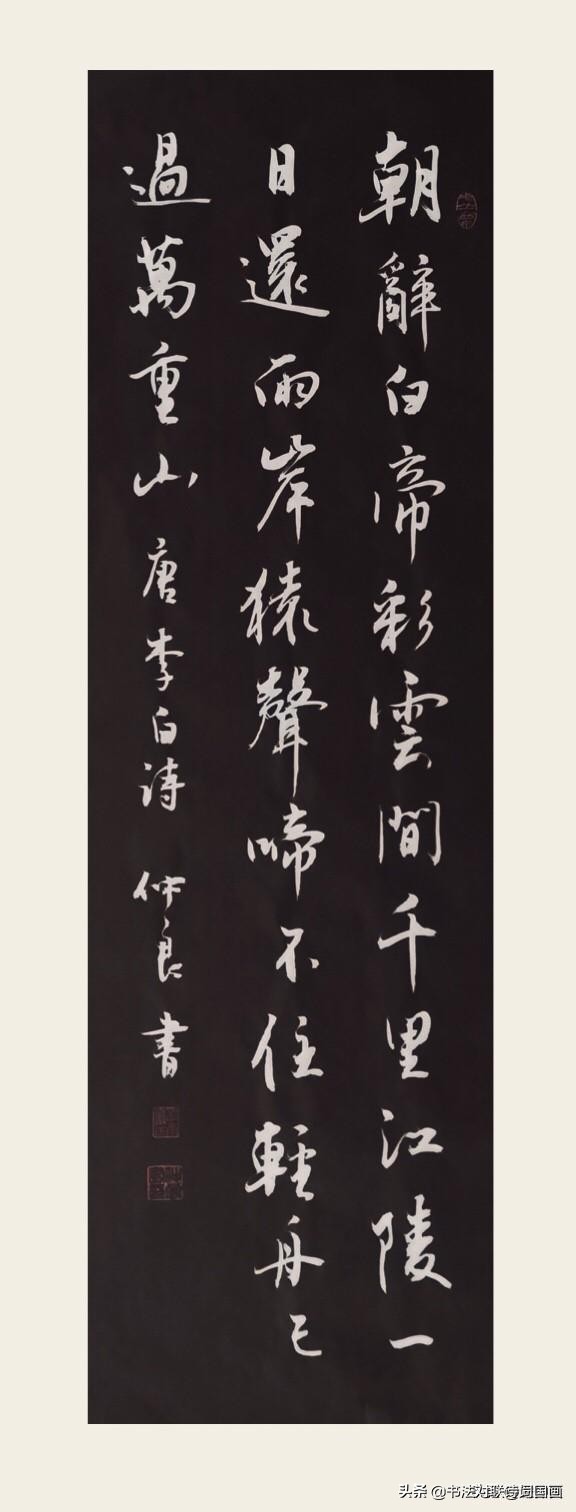 朝辭白帝彩雲間千里江陵一
日還兩岸猿聲啼不住輕舟已
過萬重山唐李白詩 仲良書
头条 @书法对联诗词国画